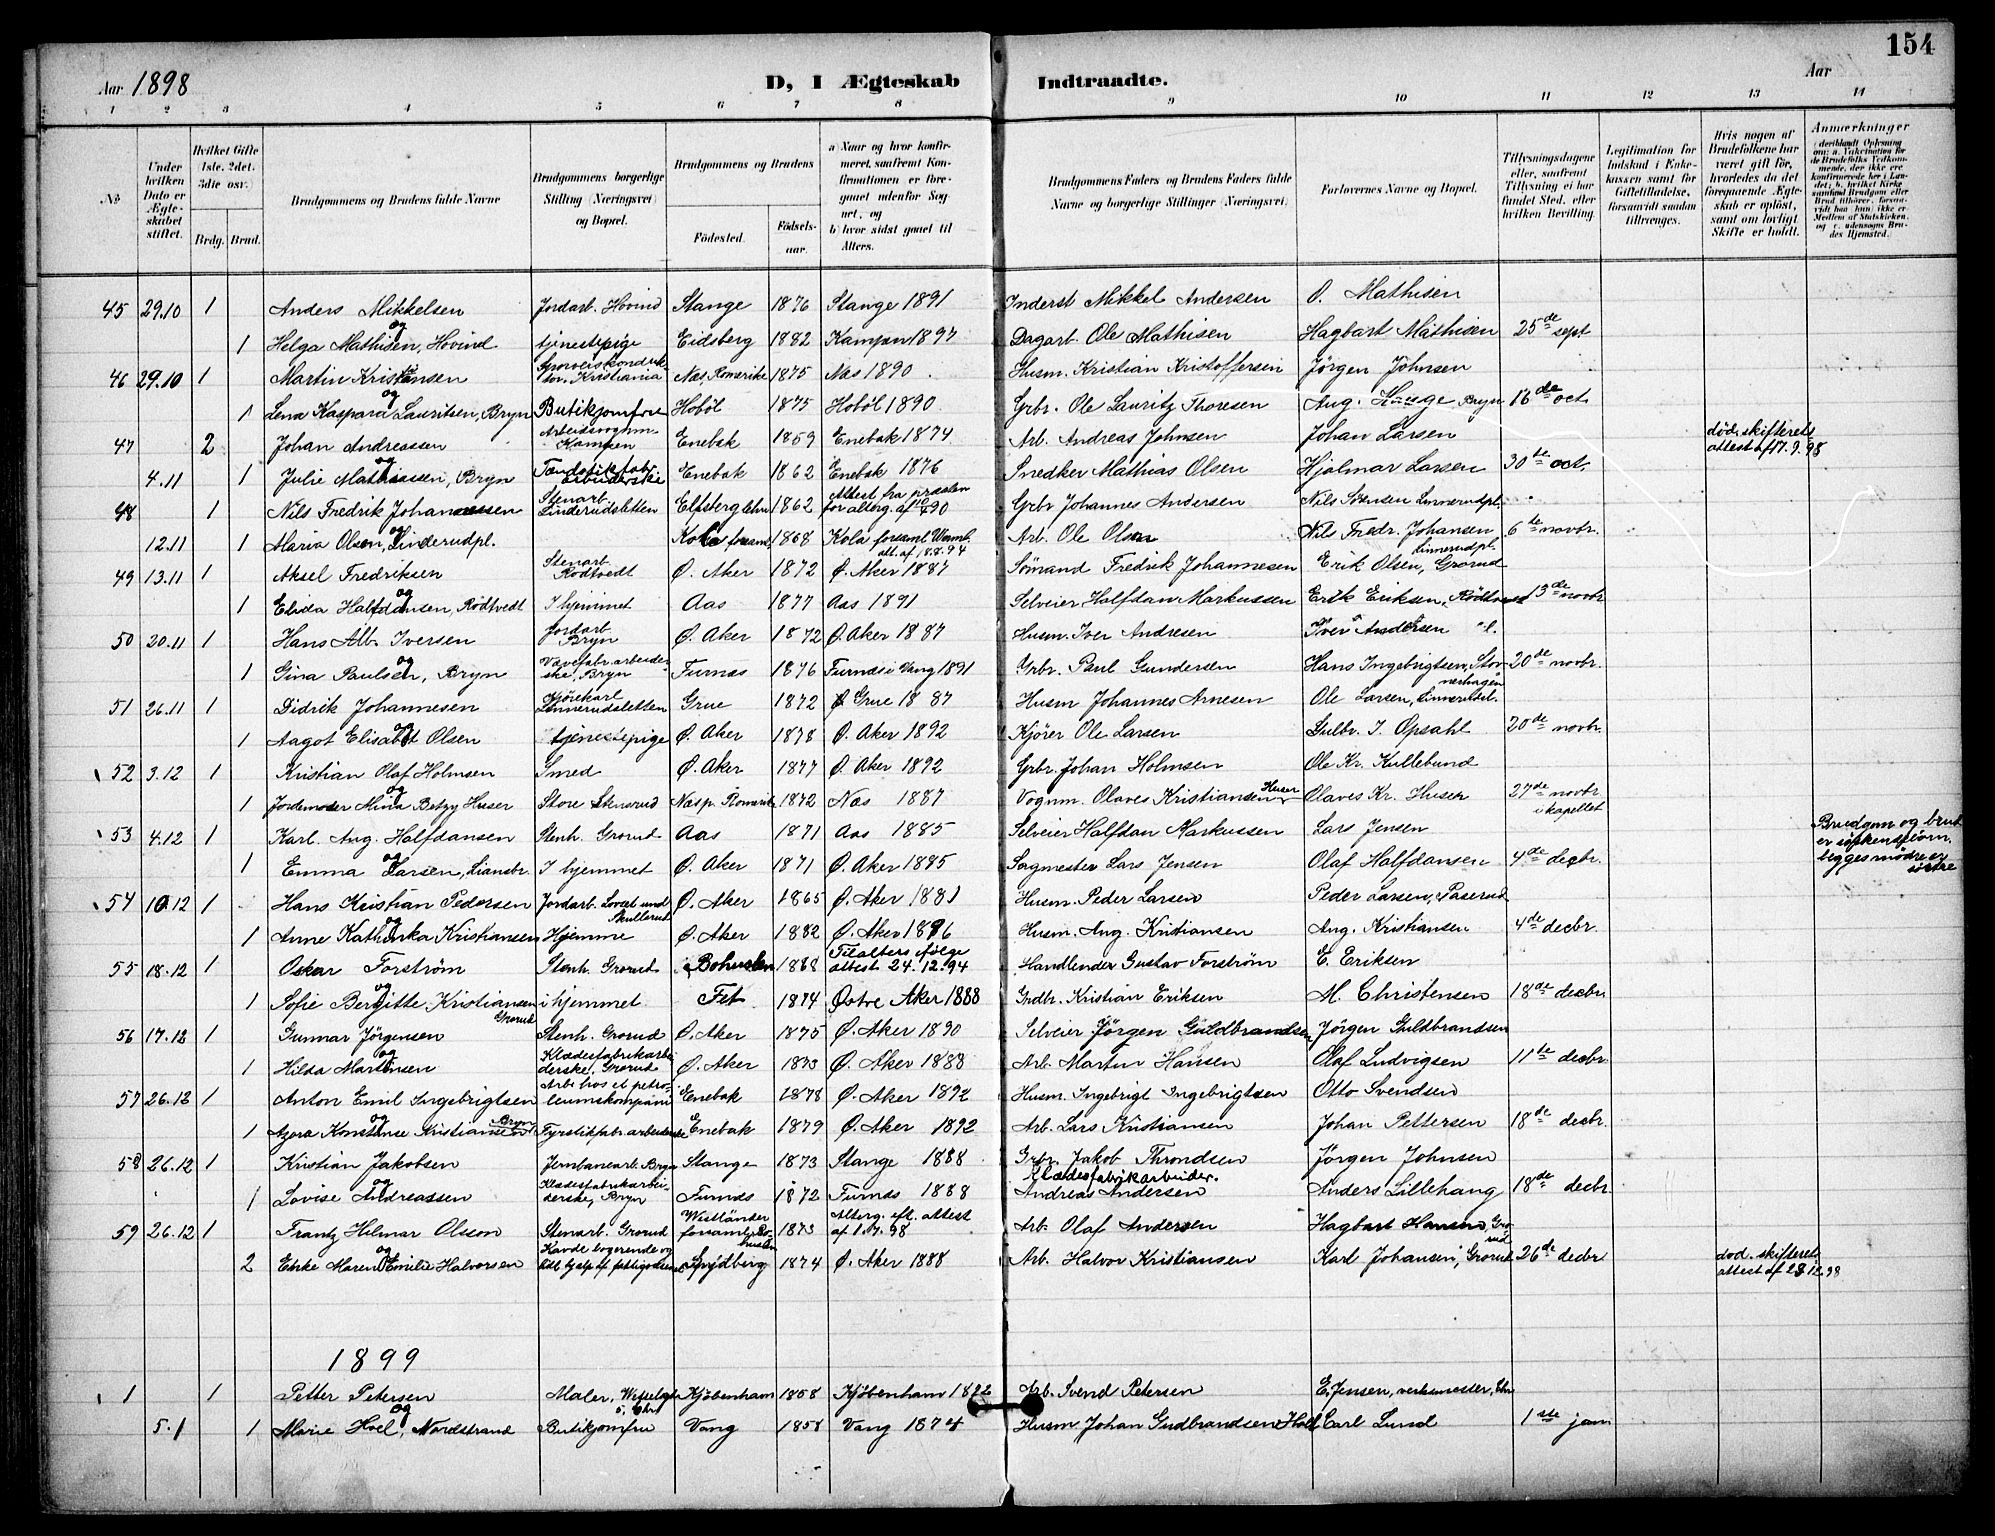 154
Aar 1898 D, I Ægteskab Indtraadte. Aar
1 2 3 4 5 6 7 8 9 10 11 12 13 14
№ Under hvilken Dato er Ægteskabet stiftet.
Hvilket Gifte 1ste, 2det, 3die osv.
Brdg. Brud.
Brudgommens og Brudens fulde Navne
Brudgommens borgerlige Stilling (Næringsvei) og Bopæl.
Brudgommens og Brudens
Fødested. Fødselsaar.
a Naar og hvor konfirmeret, saafremt Konfirmationen er foregaaet udenfor Sognet, og b) hvor sidst gaaet til Alters.
Brudgommens Faders og Brudens Faders fulde Navne og borgerlige Stillinger (Næringsvei).
Forlovernes Navne og Bopæl.
Tillysningsdagene eller, saafremt Tillysning ei har fundet Sted, efter hvilken Bevilling.
Legitimation for Indskud i Enkekassen samt for Giftetilladelse, forsaavidt saadan tiltrænges.
Hvis nogen af Brudefolkene har været gift før, hvorledes da det foregaaende Ægteskab er opløst, samt om lovligt Skifte er holdt.
Anmærkninger
(deriblandt Oplysning om: a. Vakcination for de Brudefolks Vedkommende, der ikke ere konfirmerede her i Landet; b. hvilket Kirkesamfund Brudgom eller Brud tilhører, forsaavidt han (hun) ikke er Medlem af Statskirken, og c. udensogns Brudes Hjemsted.)
45 29.10 1 Anders Mikkelsen Jordarb. Hovind Stange 1876 Stange 1891 Inderst Mikkel Andersen O. Mathisen
og
1 Helga Mathisen, Hovind tjenestepige Eidsberg 1882 Kampen 1897 Dagarb. Ole Mathisen Hagbart Mathisen 25de sept
46 29.10 1 Martin Kristiansen Sporveiskonduktør, Kristiania Næs, Romerike 1875 Næs 1890. Husm. Kristian Kristoffersen Jörgen Johnsen
og
1 Lena Kaspara Lauritsen, Bryn Butikjomfru Hobøl 1875 Hobøl 1890 Grbr. Ole Lauritz Thoresen Aug. Hauge Bryn 16de oct
47 2 Johan Andreassen Arbeidsvognm. Kampen Enebak 1859 Enebak 1874 Arb. Andreas Johnsen Johan Larsen død, skifteretsattest af 17.9.98
og
4.11 1 Julie Mathiassen, Bryn Tændstikfabr. arbeiderske Enebak 1862 Enebak 1876 Snedker Mathias Olsen Hjalmar Larsen 30te oct.
48 1 Nils Fredrik Johannessen Stenarb. Linderudsletten Elfsborg lehn 1862 Attest fra præsten for alterg. af 90 Grbr Johannes Andersen Nils Sörensen Linnerudpl.
og
12.11 1 Maria Olsen, Linderudpl. Kola forsaml. 1868 Kola forsaml. Wermb. att. af 18.8.94 Arb. Ole Olsen Nils Fredr. Johansen Linnerudpl. 6te novbr.
49 13.11 1 Aksel Fredriksen Stenarb. Rødtvedt Ø. Aker 1872 Ø. Aker 1887 Sömand Fredrik Johannesen Erik Olsen, Grorud
og
1 Elida Halfdansen, Rödtvedt I hjemmet Aas 1877 Aas 1891 Selveier Halfdan Markussen Erik Eriksen, Rödtvedt 13de novbr
50 20.11 1 Hans Alb. Iversen Jordarb. Bryn Ø. Aker 1872 Ø. Aker 1887 Husm. Iver Andresen Iver Andersen
og
1 Gina Paulsen, Bryn Vævefabr. arbeiderske, Bryn Furnæs 1876 Furnæs i Vang 1891 Grbr. Paul Gundersen Hans Ingebrigtsen, Stovnerhagen 20de novbr.
51 26.11 1 Didrik Johannesen Kjörekarl Linnerudsletten Grue 1872 Grue 1887 Husm Johannes Arnesen Ole Larsen, Linnerudsl.
og
1 Aagot Elisabet Olsen tjenestepige Ø. Aker 1878 Ø. Aker 1892 Kjörer Ole Larsen Gulbr. I. Opsahl 20de novbr.
52 3.12 1 Kristian Olaf Holmsen Smed Ø. Aker 1877 Ø. Aker 1892 Grbr. Johan Holmsen Ole Kr. Kullebund
og
1 Jordemoder Mina Betzy Huser Store Stensrud Næs p. Romerike 1872 Næs 1887 Vognm. Olaves Kristiansen Huser Olaves Kr. Huser 27de novbr i kapellet
53 4.12 1 Karl. Aug. Halfdansen Stenh. Grorud Aas 1871 Aas 1885 Selveier Halfdan Markussen Lars Jensen Brudgom og brud er söskendebörn, begges mödre er söstre
og
1 Emma Larsen, Liansbr. I hjemmet Ø. Aker 1871 Ø. Aker 1885 Sagmester Lars Jensen Olaf Halfdansen 4de decbr.
54 10.12 1 Hans Kristian Pedersen Jordarb. und Skullerud Ø. Aker 1865 Ø. Aker 1881 Husm. Peder Larsen Peder Larsen, Paserud
og
1 Anne Kathinka Kristiansen Hjemme Ø. Aker 1882 Ø. Aker 1896 Husm. Aug. Kristiansen Aug. Kristiansen 4de decbr.
55 18.12 1 Oskar Forström Stenh. Grorud Bohuslen 1868 Til alters ifølge attest 24.12.94 Handlender Gustav Forström E. Eriksen
og
1 Sofie Bergitte Kristiansen Grorud i hjemmet Fet 1874 Østre Aker 1888 Grdbr. Kristian Eriksen M. Christensen 18de decbr.
56 17.12 1 Gunnar Jörgensen Stenh. Grorud Ø. Aker 1875 Ø. Aker 1890 Selveier Jörgen Guldbrandsen Jörgen Guldbrandsen
og
1 Hilda Martinsen Klædesfabrikarbeiderske, Grorud Ø. Aker 1873 Ø. Aker 1888 Arb. Martin Hansen Olaf Ludvigsen 11te decbr.
57 26.12 1 Anton Emil Ingebrigtsen Arb. hos et petroleumskompani Enebak 1878 Ø. Aker 1892 Husm. Ingebrigt Ingebrigtsen Otto Svendsen
og
1 Agora Konstanse Kristiansen Bryn Fyrstikfabr. arbeiderske Enebak 1879 Ø. Aker 1892 Arb. Lars Kristiansen Johan Pettersen 18de decbr.
58 26.12 1 Kristian Jakobsen Jernbanearb. Bryn Stange 1873 Stange 1888 Grbr. Jakob Throndsen Jörgen Johnsen
og
1 Lovise Andreassen Klædesfabrikarbeiderske, Bryn Furnæs 1872 Furnæs 1888 Klædesfabrikarbeider. Andreas Andersen Anders Lillehaug 18de decbr.
59 26.12 1 Frantz Hilmar Olsson Stenarb. Grorud Westländer forsaml. Bohuslen 1873 Alterg. eft. attest af 1.11.98 Arb. Olaf Andersen Hagbart Hansen, Grorud
og
2 Enke Maren Emilie Halvorsen Spydberg 1874 Ø. Aker 1888 Arb. Halvor Kristiansen Karl Johansen, Grorud 26de decbr død. skifteretsattest af 23.12.98
1899
1 1 Petter Petersen Maler, Kjøbenhavn 1858 Kjøbenhavn 1872 Arb. Svend Petersen E. Jensen, verksmester,
og
5.1 1 Marie Hoel, Nordstrand Butikjomfru Vang 1858 Vang 1874 Husm Johan Gudbrandsen Hoel Carl Lund 1ste jan